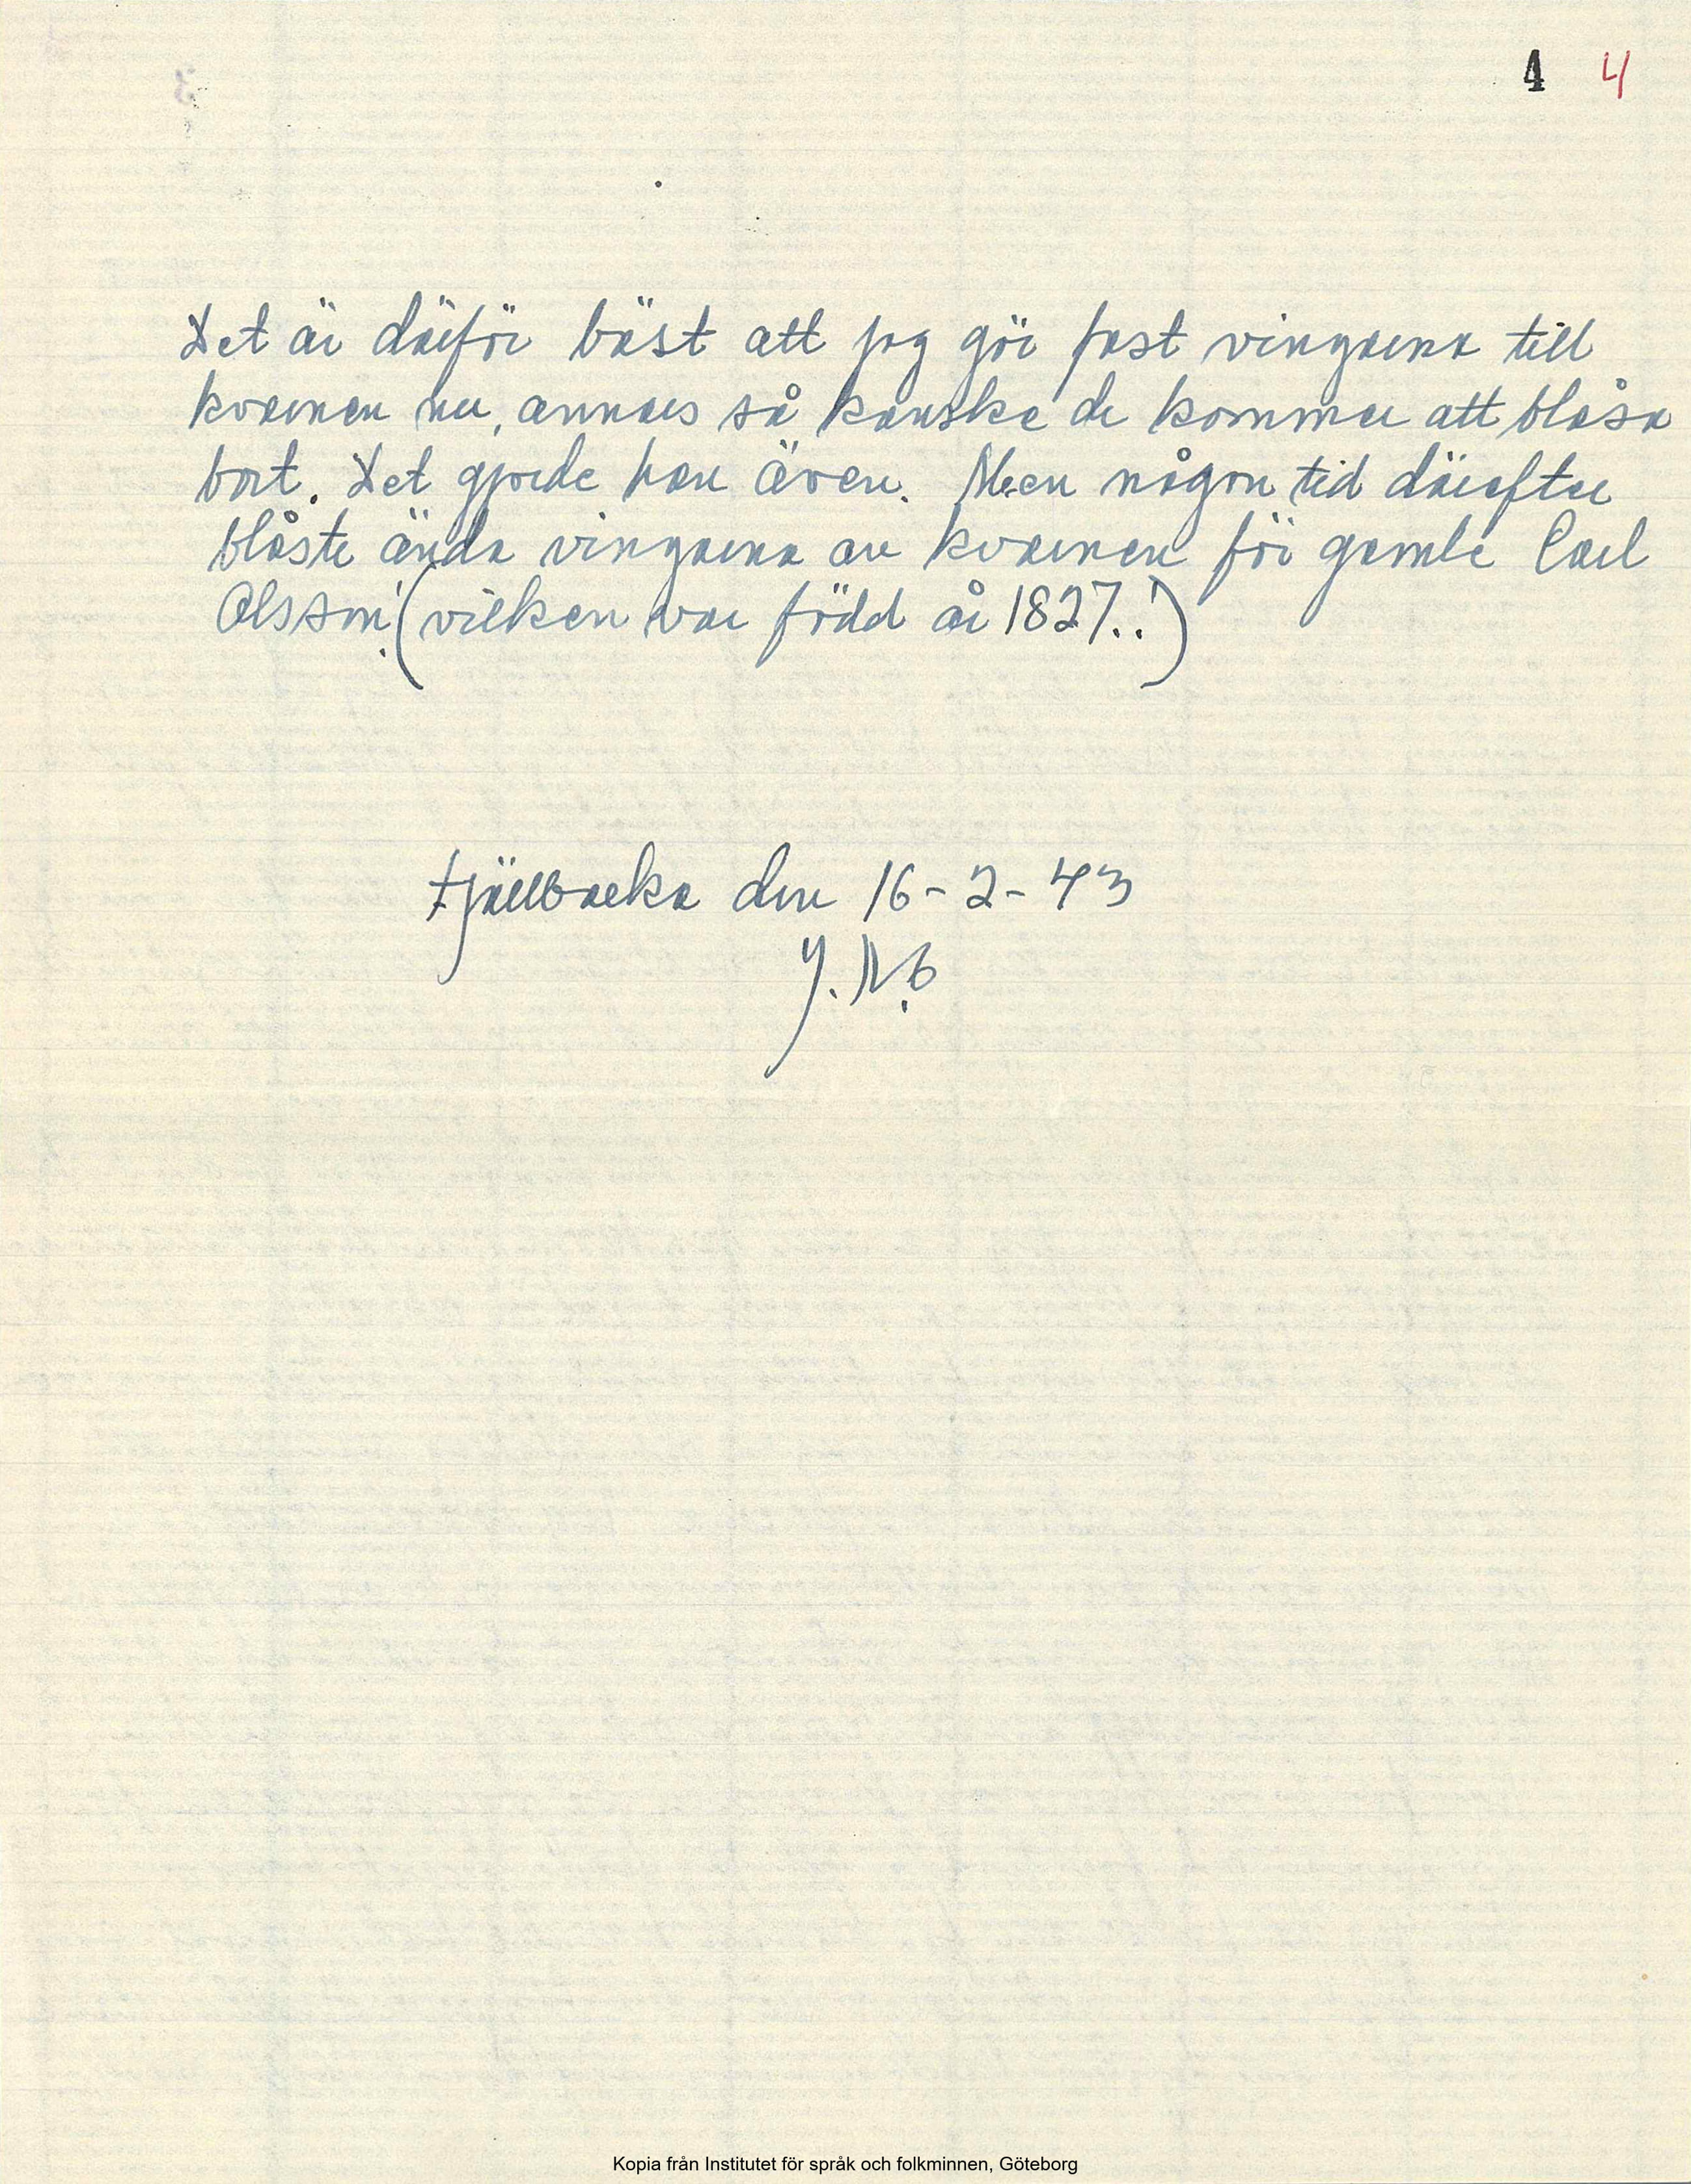 4 4
Det är därför bäst att jag gör fast vingarna till
kvarnen nu, annars så kanske de kommer att blåsa
bort. Det gjorde han även. Men någon tid därefter
blåste ända vingarna av kvarnen för gamle Carl
Olsson! (vilken var född år 1827..!)
Fjällbacka den 16-2-43
J.N.B
Kopia från Institutet för språk och folkminnen, Göteborg